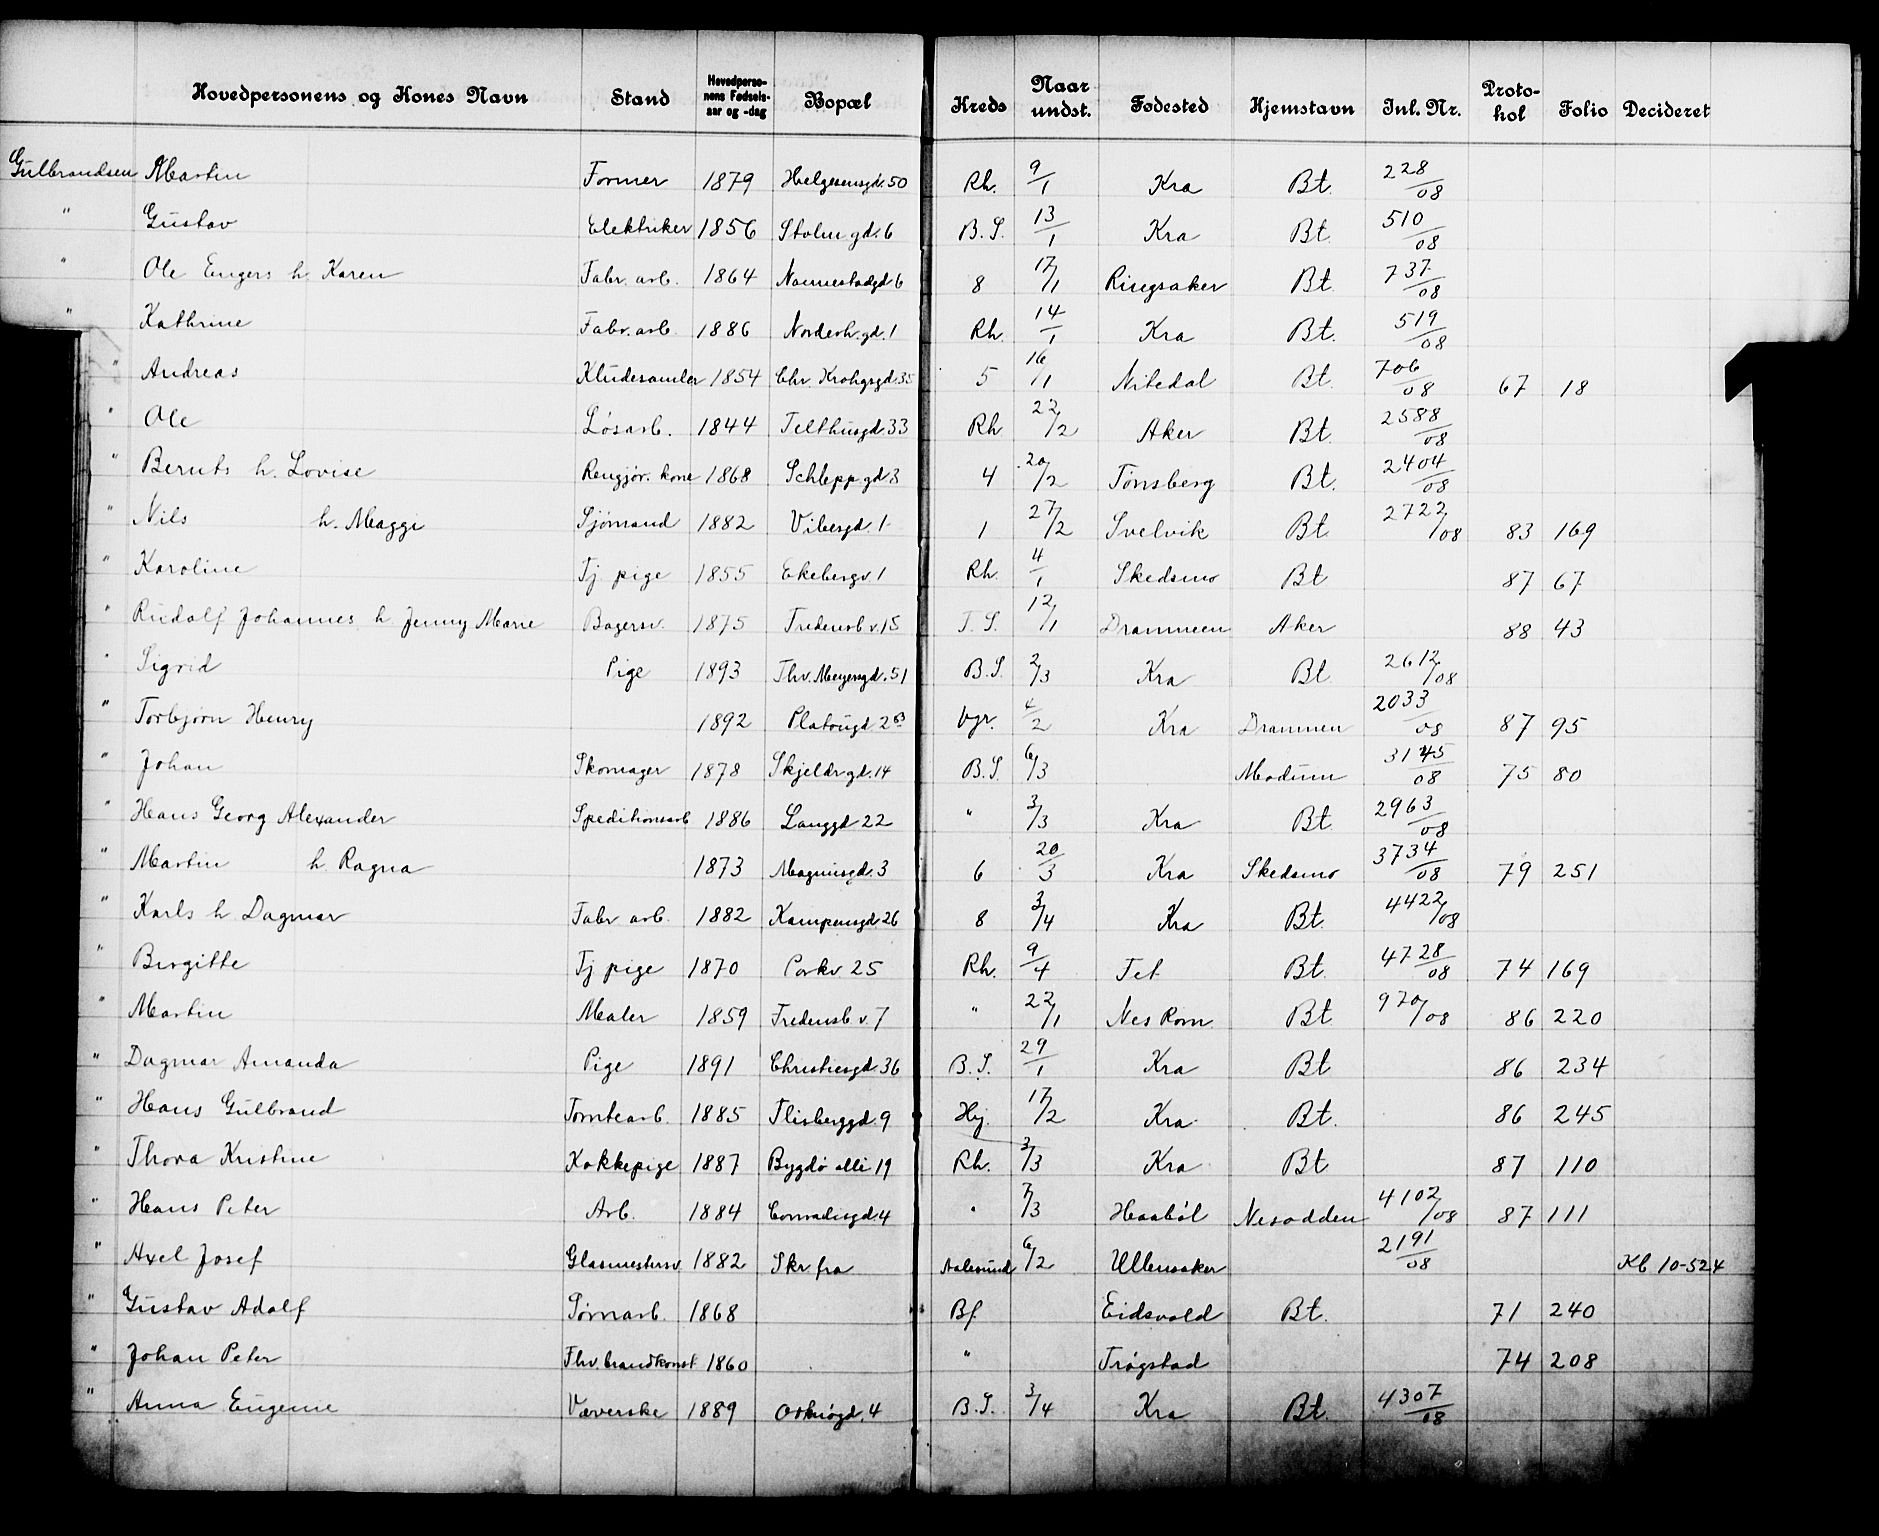 Hovedpersonens og Kones Navn Stand Hovedperso-nens Fødsels-aar og -dag Bopæl Kreds Naar undst. Fødested Hjemstavn Inl. Nr. Proto-kol Folio Decideret
Gulbrandsen Martin Former 1879 Helgesensgd. 50 Rh. 9/1 Kra Bt. 228/08
" Gustav Elektriker 1856 Stolm gd. 6 B. S. 13/1 Kra Bt. 510/08
" Ole Engers h. Karen Fabr. arb. 1864 Nannestadgd 6 8 17/1 Ringsaker Bt. 737/08
" Kathrine Fabr. arb. 1886 Norderh. gd. 1 Rh. 14/1 Kra Bt. 519/08
" Andreas Kludesamler 1854 Chr. Krohgsgd. 35 5 16/1 Nitedal Bt. 706/08 67 18
" Ole Løsarb. 1844 Telthusgd. 33 Rh 22/2 Aker Bt. 2588/08
" Bernts h. Lovise Rengjør. kone 1868 Schlepp. gd. 3 4 20/2 Tønsberg Bt. 2404/08
" Nils h. Maggi Sjömand 1882 Vibesgd. 1 1 27/2 Svelvik Bt. 2722/08 83 169
" Karoline Tj. pige 1855 Ekebergv. 1 Rh. 4/1 Skedsmo Bt 87 67
" Rudolf Johannes h. Jenny Marie Bagersv. 1875 Fredensb. v. 15 T. S. 12/1 Drammen Aker 88 43
" Sigrid Pige 1893 Thv. Meyersgd. 51 B. S. 2/3 Kra Bt. 2612/08
" Torbjørn Henry 1892 Platougd 2 Vgr. 4/2 Kra Drammen 2033/08 87 95
" Johan Skomager 1878 Skjeldr gd. 14 B. S. 6/3 Modum 3145/08 75 80
" Hans Georg Alexander Speditionsarb 1886 Langgd 22 " 3/3 Kra Bt. 2963/08
" Martin h. Ragna 1873 Magnusgd. 3 6 20/3 Kra Skedsmo 3734/08 79 251
" Karls h Dagmar Fabr arb. 1882 Kampensgd 26 8 3/4 Kra Bt. 4422/08
" Birgitte Tj pige 1870 Parkv 25 Rh. 9/4 Fet Bt. 4728/08 74 169
" Martin Maler 1859 Fredensb. v. 7 " 22/1 Nes Rom Bt. 970/08 86 220
" Dagmar Amanda Pige 1891 Christiesgd. 36 B. S. 29/1 Kra Bt 86 234
" Hans Gulbrand Tomtearb. 1885 Flisberggd. 9 Hj. 17/2 Kra Bt. 86 245
" Thora Kristine Kokkepige 1887 Bygdø alli 19 Rh. 3/3 Kra Bt. 87 110
" Hans Peter Arb. 1884 Conradisgd. 4 " 7/3 Haabøl Nesodden 4102/08 87 111
" Axel Josef Glasmestersv. 1882 Skr. fra Aalesund 6/2 Ullensaker 2191/08 Kb 10-524
" Gustav Adolf Tørnarb. 1868 Bf. Eidsvold Bt. 71 240
" Johan Peter Fhv. brandkonst 1860 " Trøgstad 74 208
" Anna Eugenie Væverske 1889 B. S. 3/4 Kra Bt. 4307/08